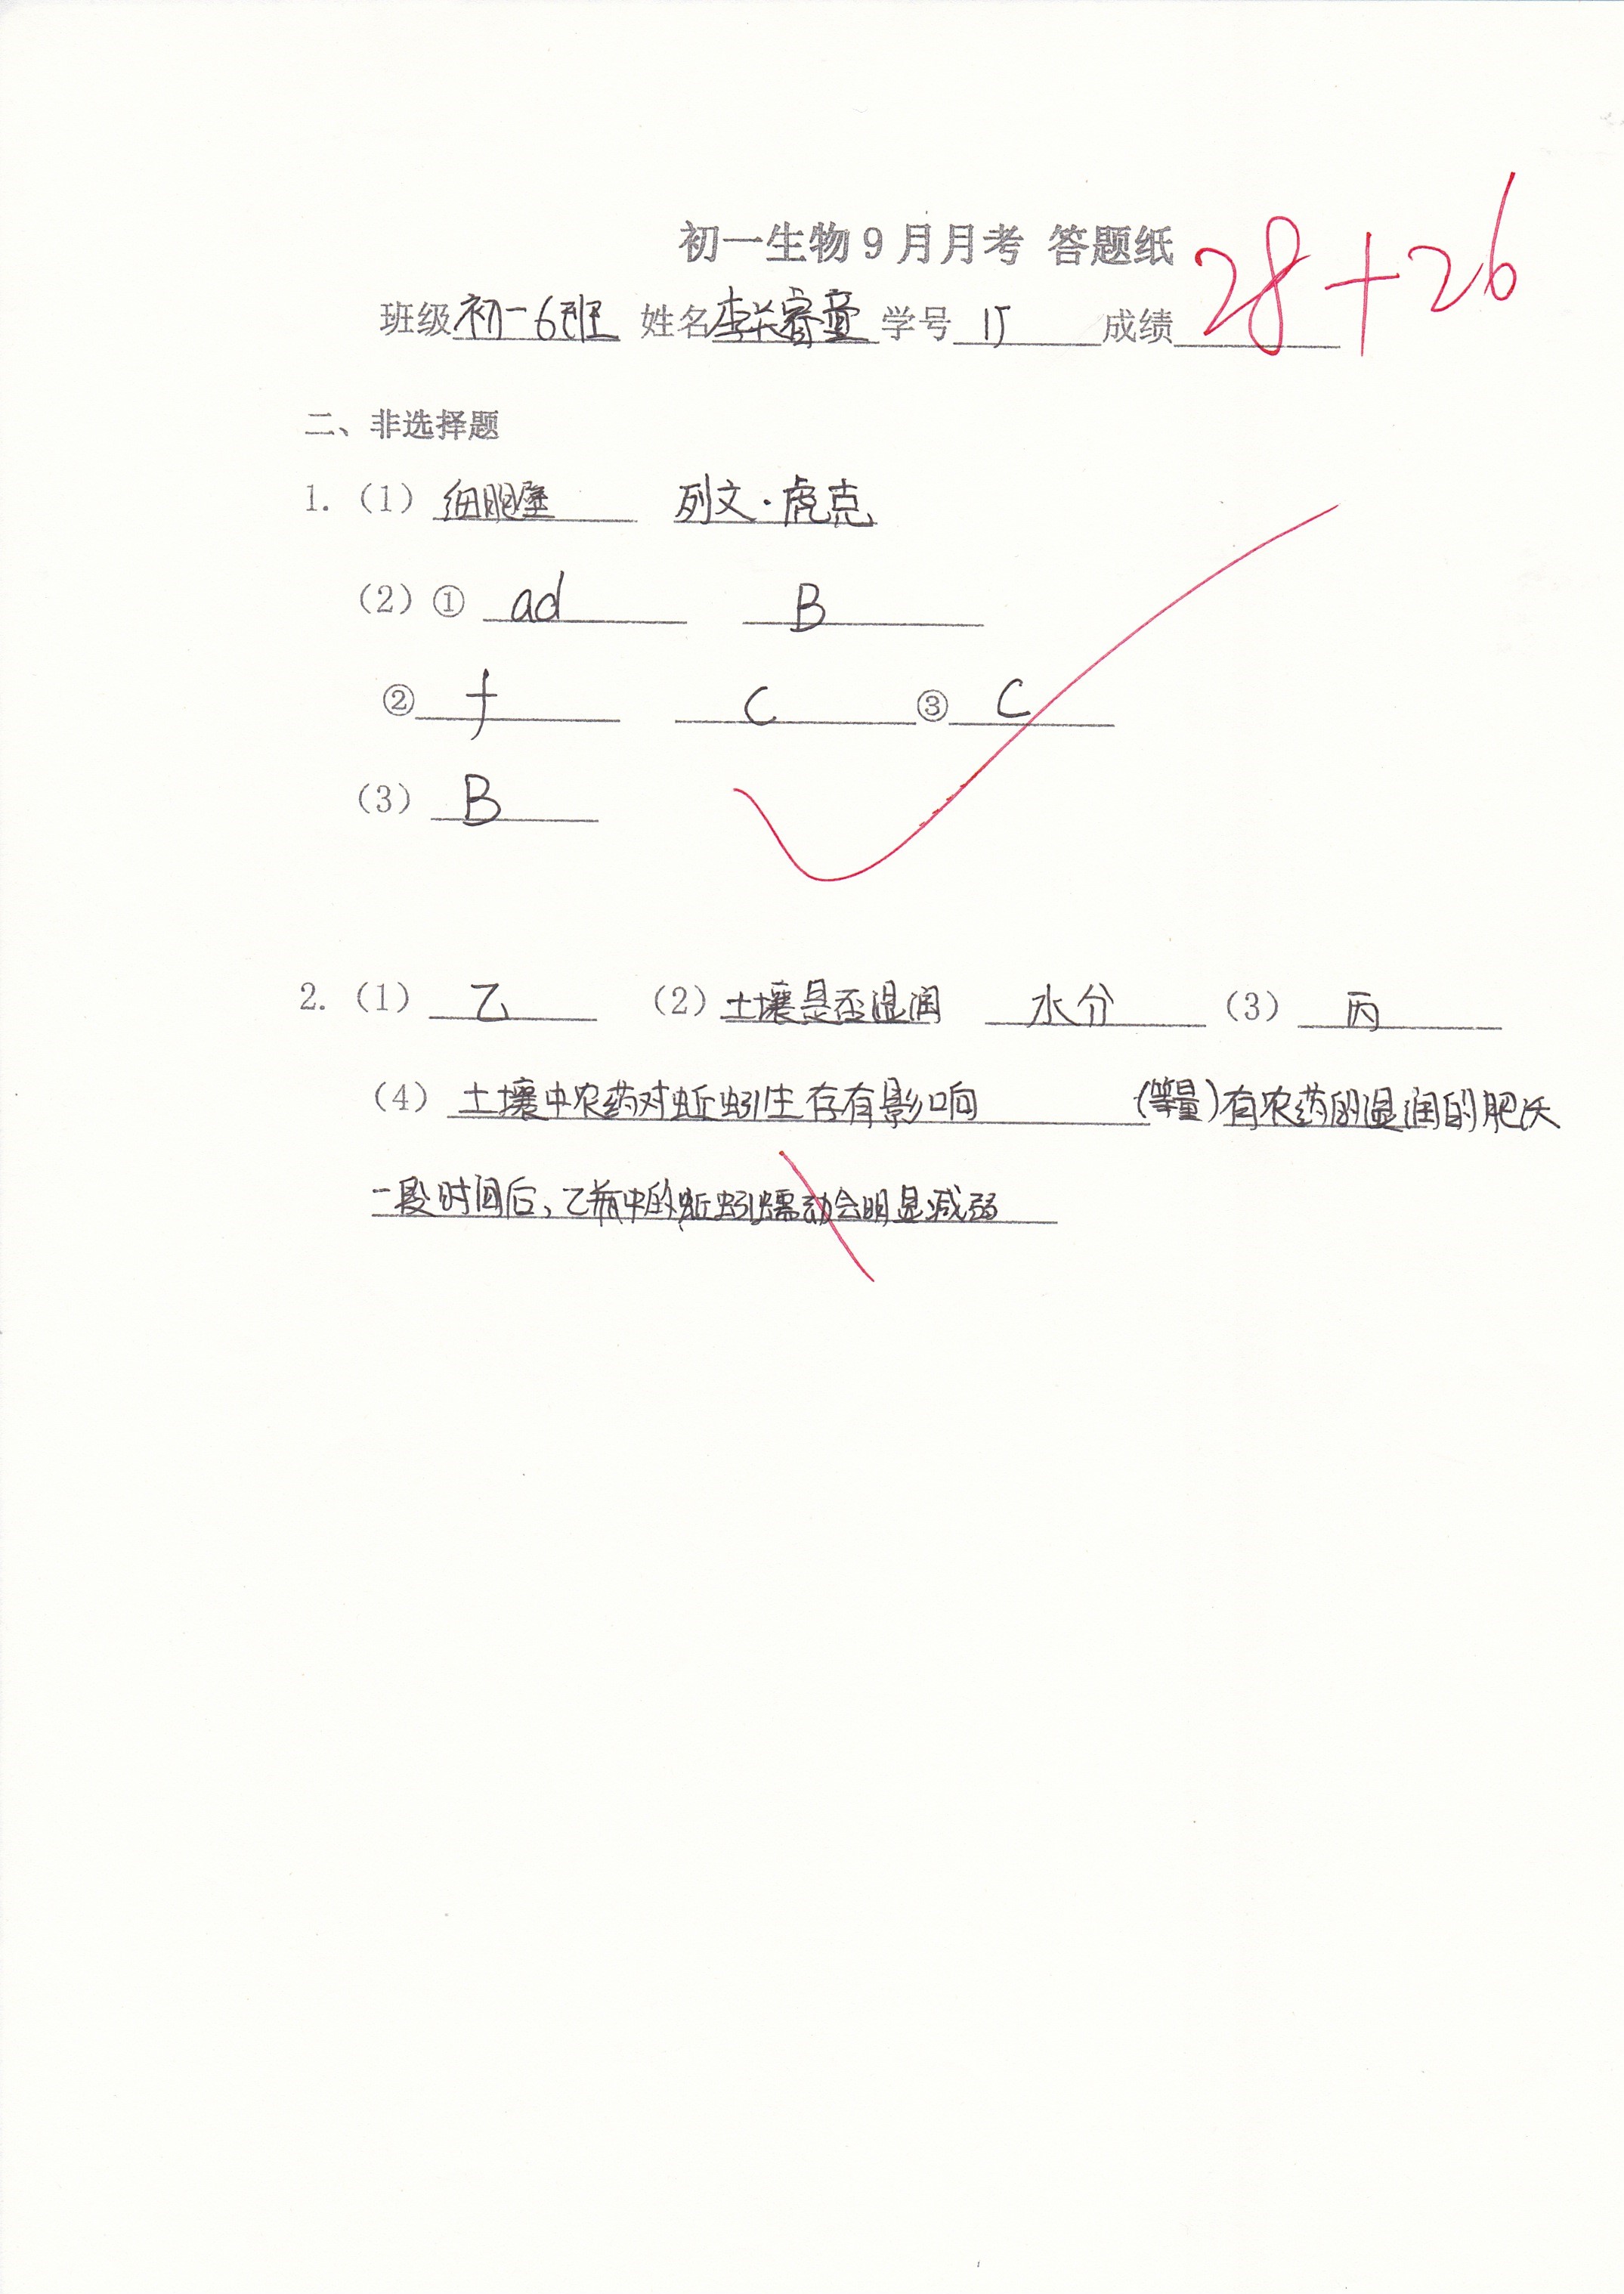 初一生物9月月考 答题纸 28+26
班级初一6班 姓名李兴睿童 学号15 成绩
二、非选择题
1.（1）细胞壁 列文·虎克
（2）① ad B
② f C ③ C
（3） B
2.（1） 乙 （2）土壤是否湿润 水分 （3） 丙
（4） 土壤中农药对蚯蚓生存有影响 (等量)有农药的湿润的肥沃
一段时间后，乙瓶中的蚯蚓蠕动会明显减弱